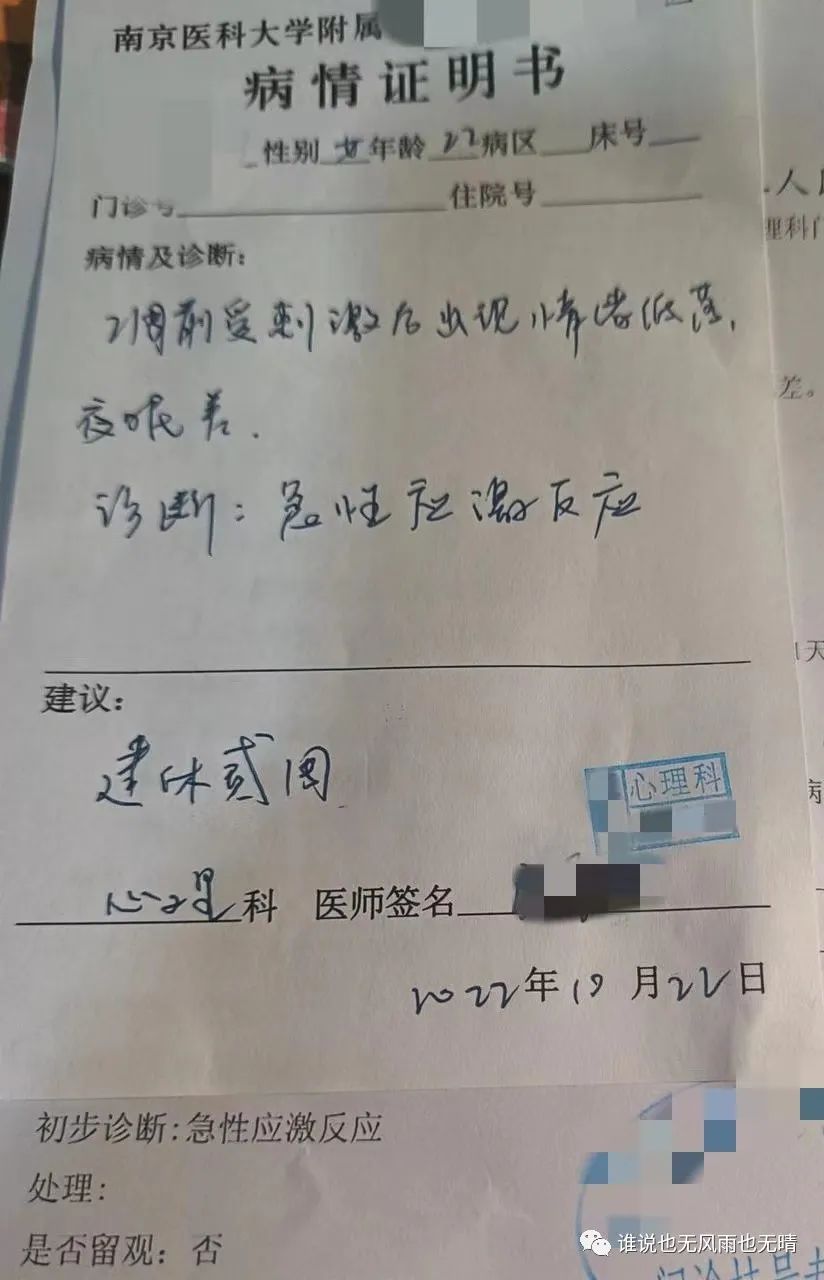 南京医科大学附属
病情证明书
性别 女 年龄 27 病区 床号
门诊号 住院号
病情及诊断:
2周前受刺激后出现情绪低落,
夜眠差.
诊断: 急性应激反应
建议:
建休贰周
心理科
心理科 医师签名
2022年10月22日
初步诊断:急性应激反应
处理:
是否留观: 否
人民
理科门
差。
1天
病
谁说也无风雨也无晴